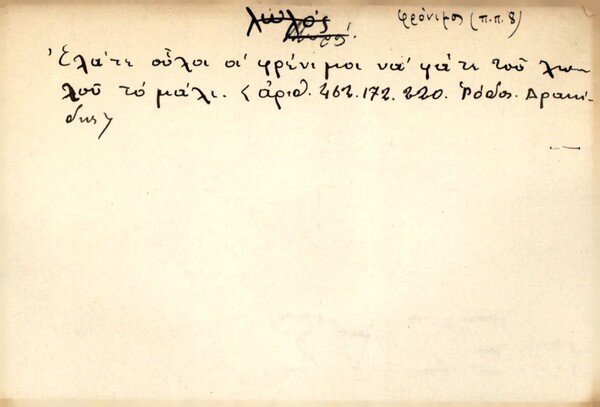 λωλός φρόνιμος (π.π. 8)
Ἐλᾶτε οὗλοι οἱ φρένιμοι νὰ φᾶτε τοῦ λωλ-
λοῦ τὸ μάλι. < ἀριθ. 462. 172. 220. Ῥόδος. Δρακί-
δης >